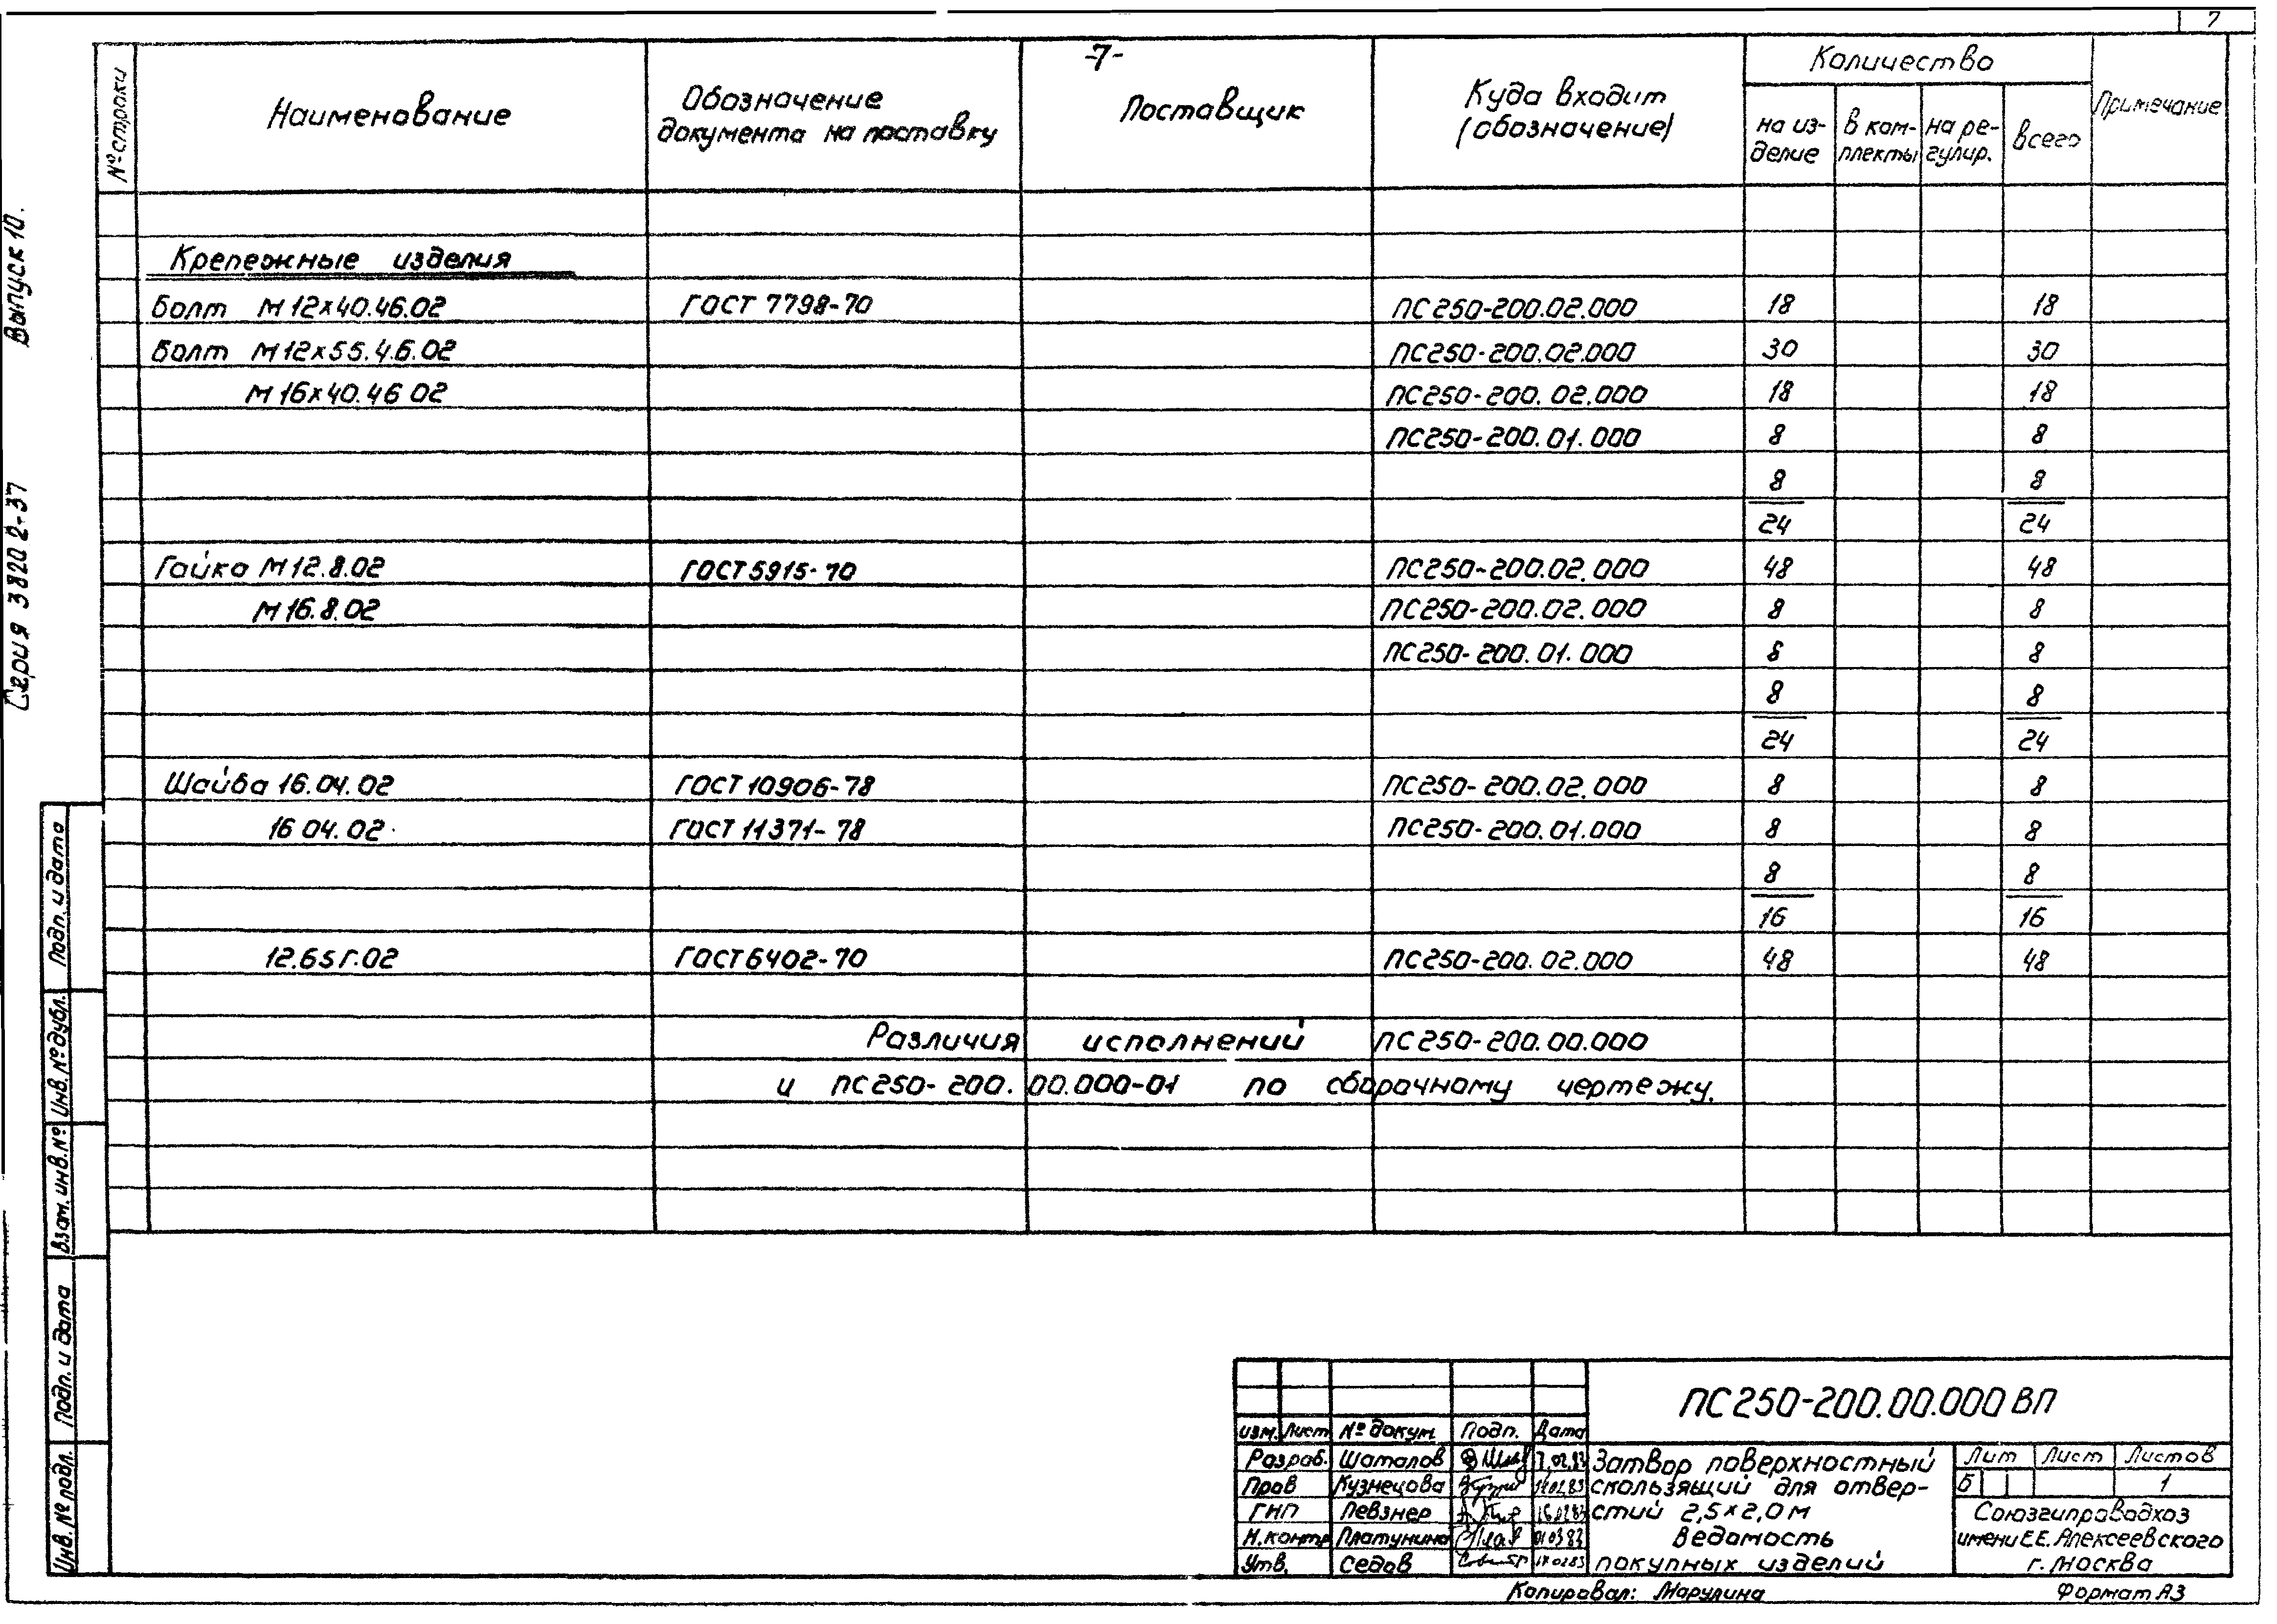 7
-7-
№ строки
Наименование
Обозначение
документа на поставку
Поставщик
Куда входит
(обозначение)
Количество
на из-
делие
В ком-
плекты
на ре-
гулир.
всего
Примечание
Крепежные изделия
Болт М12х40.46.02 ГОСТ 7798-70 ПС250-200.02.000 18 18
Болт М12х55.4.6.02 ПС250-200.02.000 30 30
М16х40.46 02 ПС250-200.02.000 18 18
ПС250-200.01.000 8 8
8 8
24 24
Гайка М12.8.02 ГОСТ 5915-70 ПС250-200.02.000 48 48
М16.8.02 ПС250-200.02.000 8 8
ПС250-200.01.000 8 8
8 8
24 24
Шайба 16.04.02 ГОСТ 10906-78 ПС250-200.02.000 8 8
16 04.02 ГОСТ 11371-78 ПС250-200.01.000 8 8
8 8
16 16
12.65Г.02 ГОСТ 6402-70 ПС250-200.02.000 48 48
Различия исполнений ПС250-200.00.000
и ПС250-200.00.000-01 по сборочному чертежу.
Выпуск 10.
Серия 3 820 2-37
Подп. и дата
Инв. № дубл.
Взам. инв. №
Подп. и дата
Инв. № подл.
ПС250-200.00.000 ВП
Изм. Лист № докум. Подп. Дата
Разраб. Шаталов
Пров Кузнецова
ГИП Певзнер
Н.контр Платунина 01.03.83
Утв. Седов
Затвор поверхностный
скользящий для отвер-
стий 2,5×2,0 м
Ведомость
покупных изделий
Лит Лист Листов
Б 1
Союзгипроводхоз
имени Е.Е. Алексеевского
г. Москва
Копировал: Марулина
Формат А3